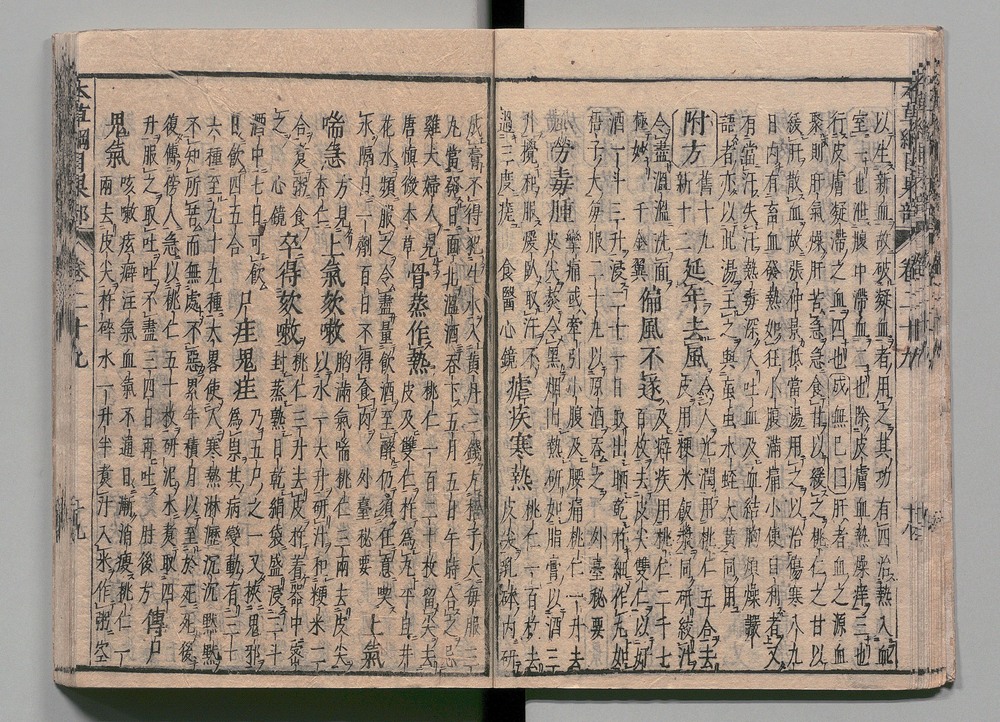 以生新血故破凝血者用之其功有四治熱入血
室一也泄腹中滯血二也除皮膚血熱燥痒三也
行皮膚凝滯之血四也成無已曰肝者血之源血
聚則肝氣燥肝苦急急食甘以緩之桃仁之甘以
緩肝散血故張仲景抵當湯用之以治傷寒八九
日內有畜血發熱如狂小腹滿痛小便自利者又
有當汗失汗熱毒深入吐血及血結胸煩燥讝
語者亦以此湯主之與虻蟲水蛭大黃同用
附方 舊十九 新十二 延年去風 令人光潤用桃仁五合去
皮用粳米飯漿同研絞汁
令盡溫溫洗面
極妙 千金翼 偏風不遂 及癖疾用桃仁二千七
百枚去皮尖雙仁以好
酒一斗三升浸二十一日取出晒乾杵細作丸如
梧子大每服二十丸以原酒吞之 外臺秘要
攣痛或牽引小腹及腰痛桃仁一升去
皮尖熬令黑烟出熱研如脂膏以酒三
升攪和服暖臥取汗不
過三度瘥 食醫心鏡 瘧疾寒熱 皮尖乳研內研
成膏不得犯生水入黃丹三錢丸梧子大每服三
丸當發日面北溫酒吞下五月五日午時合之忌
雞犬婦人見
唐慎微本草 骨蒸作熱 桃仁一百二十枚留尖去
皮及雙仁杵為丸平旦井
花水頓服之令盡量飲酒至醉仍須任意喫
水隔日一劑百日不得食肉 外臺秘要 上氣
喘急 方見
杏仁 上氣欬嗽 胸滿氣喘桃仁三兩去皮尖
以水一大升研汁和粳米二
合煮粥食
之 心鏡 卒得欬嗽 桃仁三升去皮杵著器中密
封蒸熱日乾絹袋盛浸二斗
酒中七日可飲
日飲四五合 尸疰鬼疰 乃五尸之一又挾鬼邪
為祟其病變動有三十
六種至九十九種大畧使人寒熱淋瀝沉沉默默
不知所苦而無處不惡累年積月以至於死死後
復傳傍人急以桃仁五十枚研泥水煮取四
升服之取吐吐不盡三四日再吐 肘後方 傳尸
鬼氣 咳嗽痃癖注氣血氣不通日漸消瘦桃仁一
兩去皮尖杵碎水一升半煮汁入米作粥空